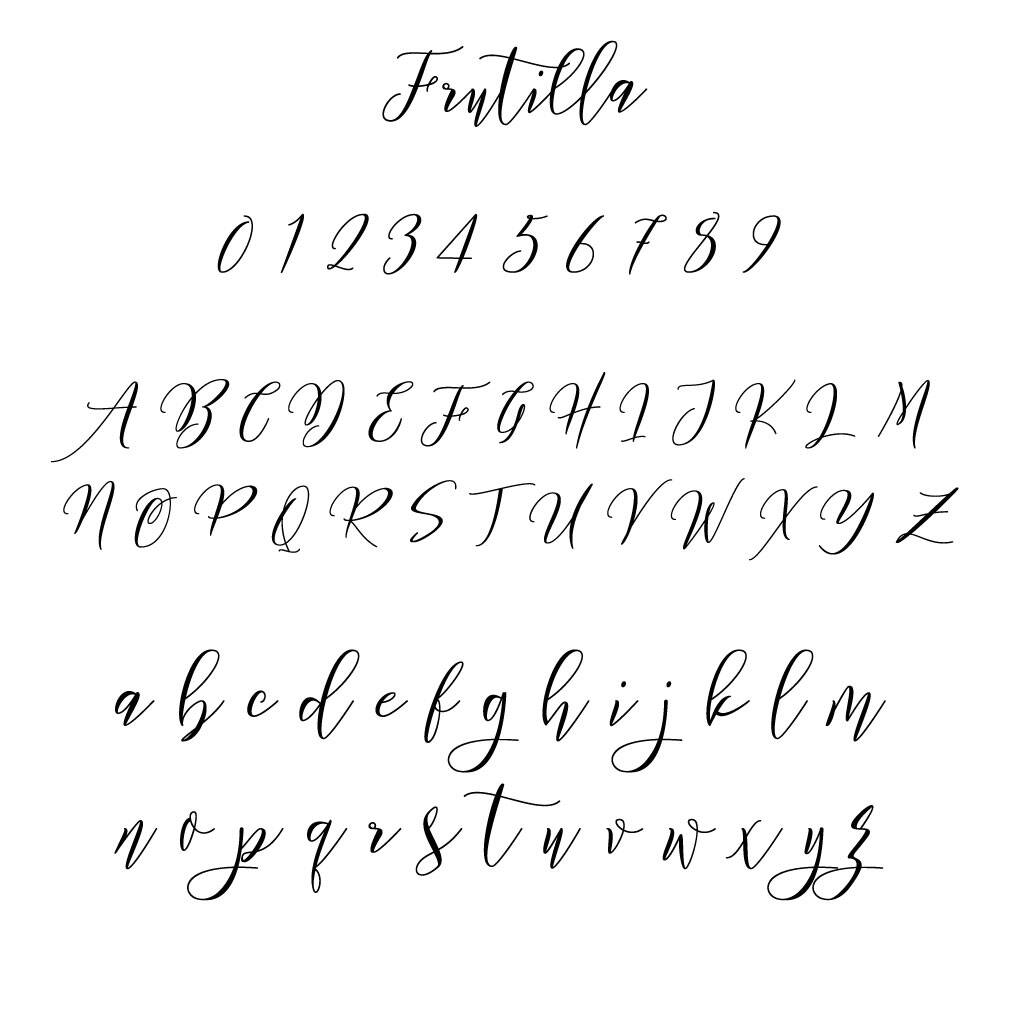 Frutilla
0 1 2 3 4 5 6 7 8 9
A B C D E F G H I J K L M
N O P Q R S T U V W X Y Z
a b c d e f g h i j k l m
n o p q r s t u v w x y z